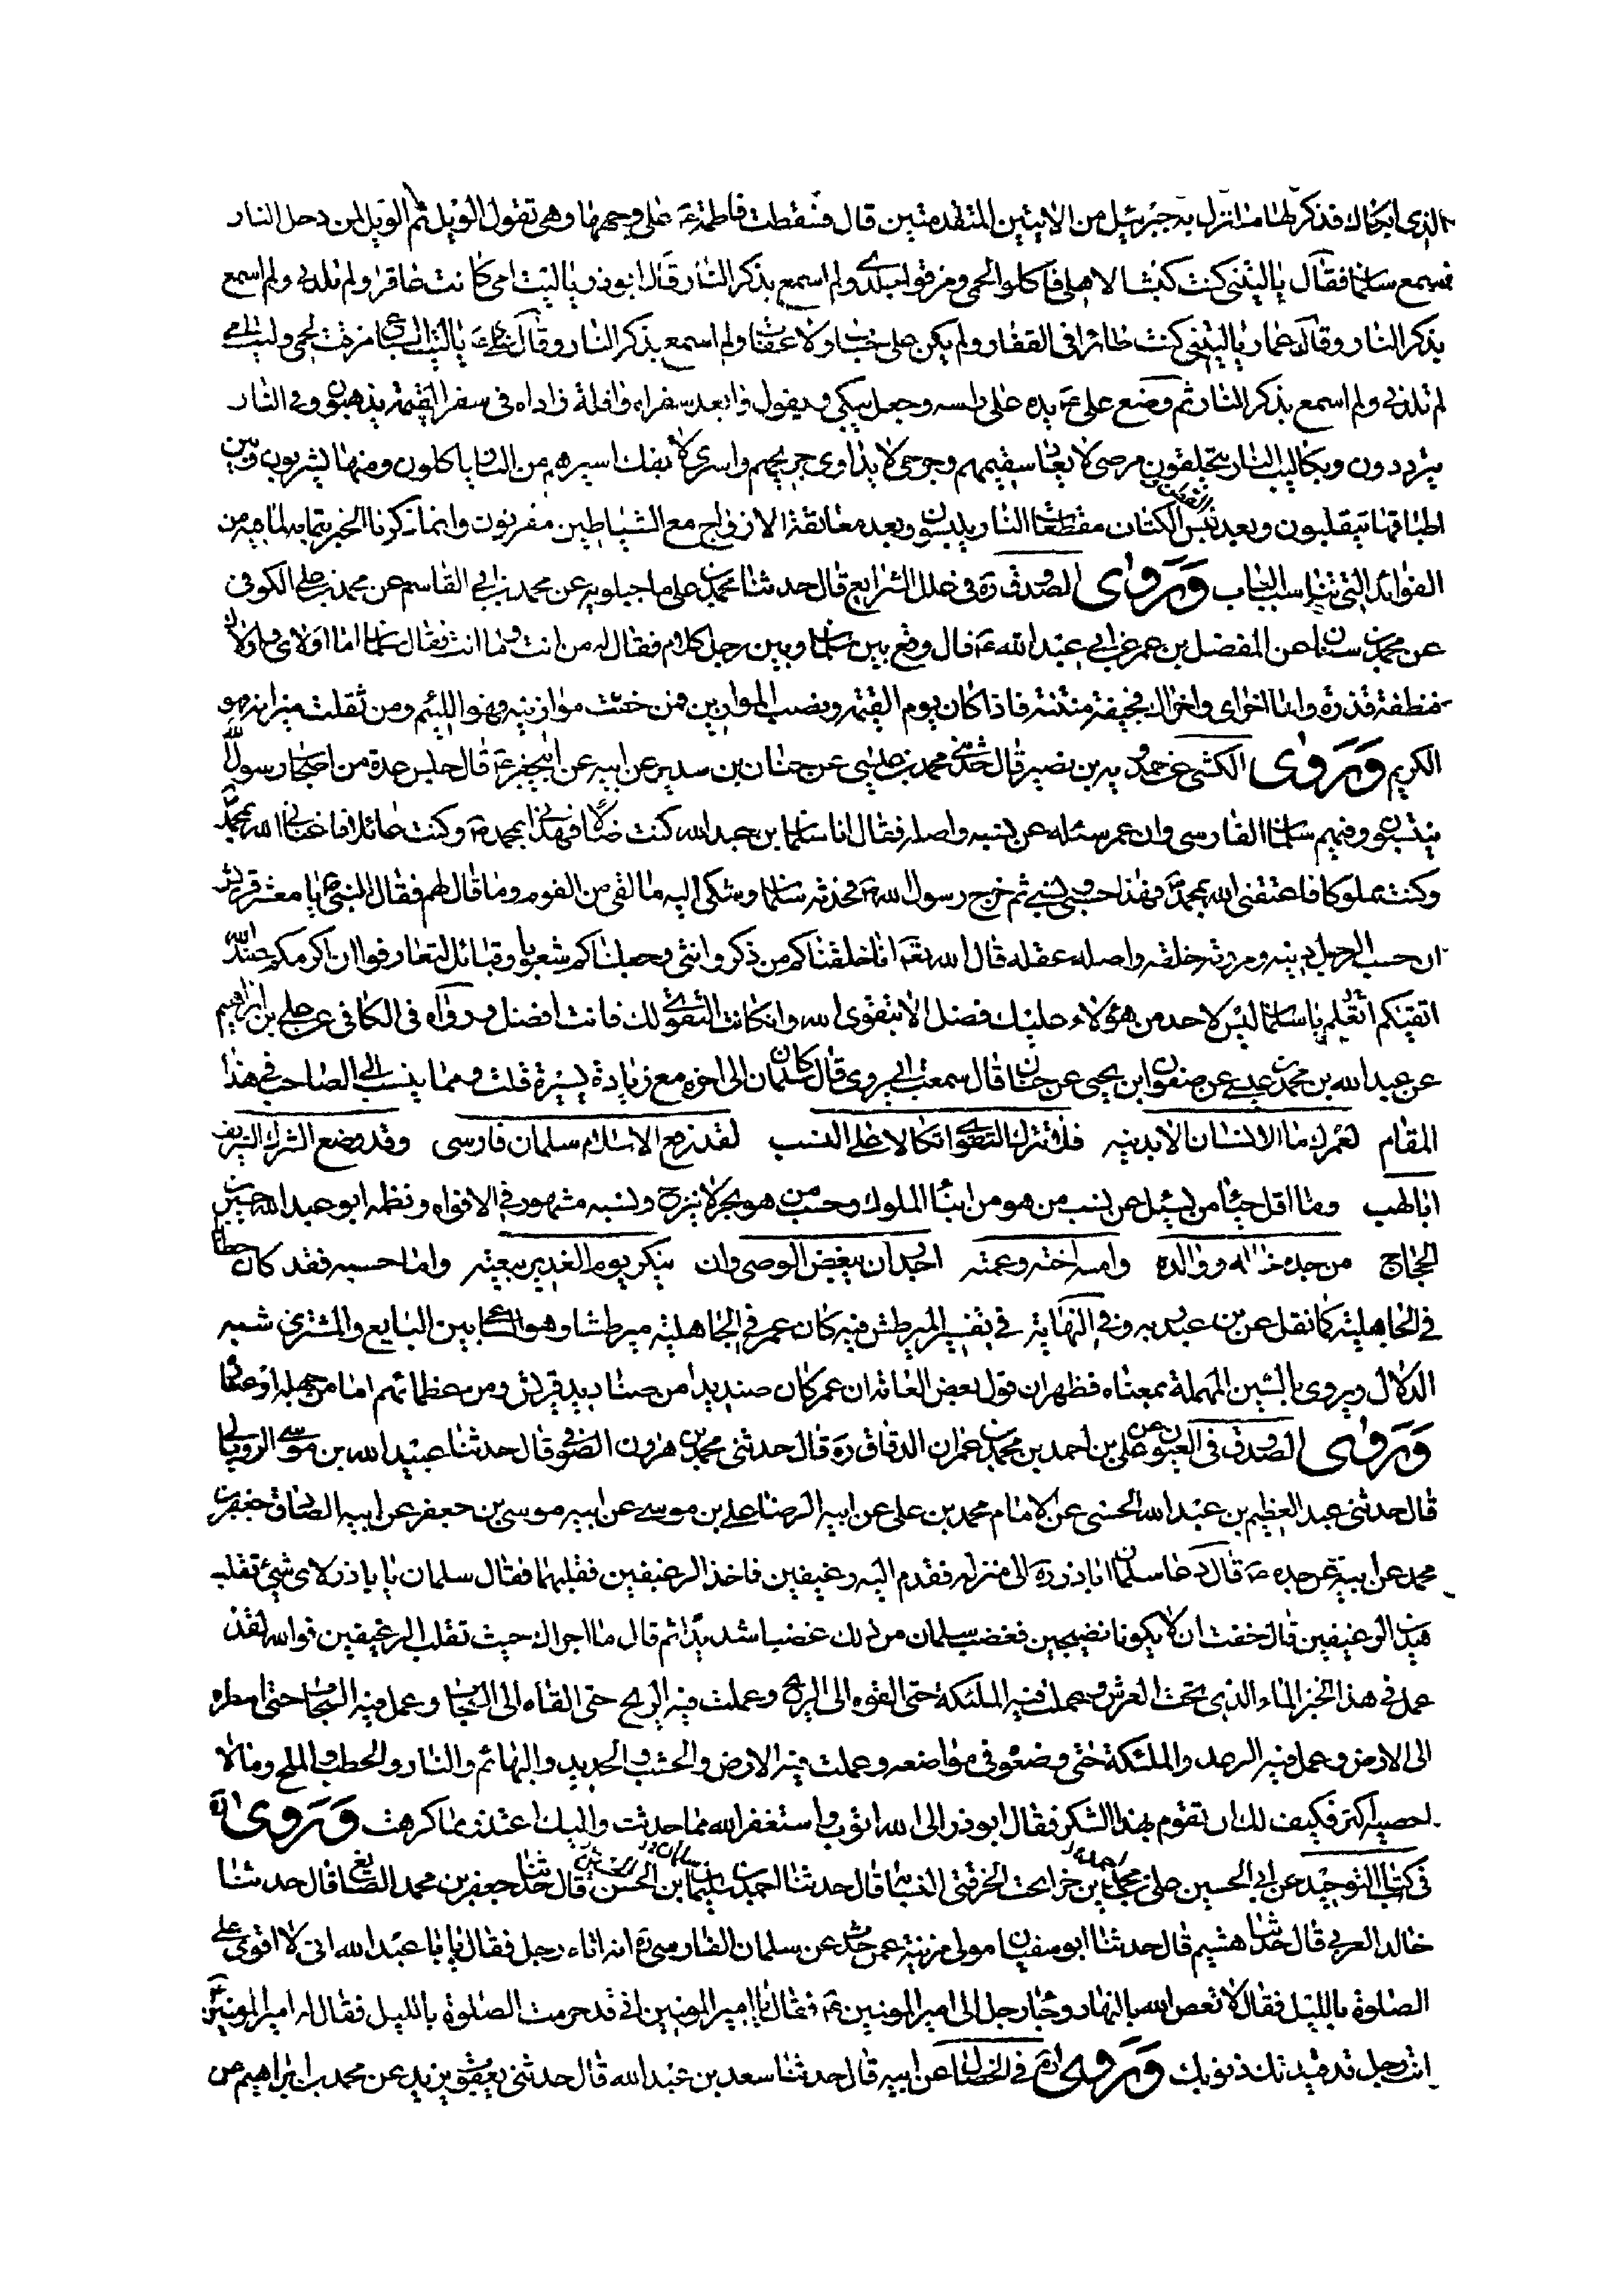 الذي ابكاك فذكر لها ما نزل به جبرئيل من الايتين المتقدمتين قال فسقطت فاطمة ع على وجهها وهى تقول الويل ثم الويل لمن دخل النار
فسمع سلمان فقال يا ليتنى كنت كبشا لاهلى فاكلوا لحمى ومزقوا جلدي ولم اسمع بذكر النار وقال ابوذر يا ليت امى كانت عاقرا ولم تلدنى ولم اسمع
بذكر النار وقال عمار يا ليتنى كنت طائرا فى القفار ولم يكن على حساب ولا عقاب ولم اسمع بذكر النار وقال على ع يا ليت السباع مزقت لحمى وليت امى
لم تلدنى ولم اسمع بذكر النار ثم وضع على ع يده على راسه وجعل يبكى ويقول وا بعد سفراه وا قلة زاداه فى سفر القيمة يذهبون وفى النار
يترددون وبكلاليب النار يتخطفون مرضى لا يعاد سقيمهم وجرحى لا يداوى جريحهم واسرى لا يفك اسيرهم من النار ياكلون ومنها يشربون وبين
اطباقها يتقلبون وبعد لبس القطن الكتان مقطعات النار يلبسون وبعد معانقة الازواج مع الشياطين مقرنون وانما ذكرنا الخبر بتمامه لما فيه من
الفوائد التى تناسب الباب وروى الصدوق ره فى علل الشرايع قال حدثنا محمد بن على ماجيلويه عن محمد بن ابى القاسم عن محمد بن على الكوفى
عن محمد بن سنان عن المفضل بن عمر عن ابى عبد الله ع قال وقع بين سلمان وبين رجل كلام فقال له من انت وما انت فقال سلمان اما اولاى واولاك
فنطفة قذرة واما اخراى واخراك فجيفة منتنة فاذا كان يوم القيمة ونصب الموازين فمن خفت موازينه فهو اللئيم ومن ثقلت ميزانه فهو
الكريم وروى الكشى عن حمدويه بن نصير قال حدثنى محمد بن عيسى عن حنان بن سدير عن ابيه عن ابيجعفر ع قال جلس عدة من اصحاب رسول الله
ينتسبون وفيهم سلمان الفارسى وان عمر سئله عن نسبه واصله فقال انا سلمان بن عبد الله كنت ضالا فهدانى الله بمحمد ص وكنت عائلا فاغنانى الله بمحمد
وكنت مملوكا فاعتقنى الله بمحمد ص فهذا حسبى ونسبى ثم خرج رسول الله ص فحدثه سلمان وشكى اليه ما لقى من القوم وما قال لهم فقال النبى ص يا معشر قريش
ان حسب الرجل دينه ومروته خلقه واصله عقله قال الله تعه انا خلقناكم من ذكر وانثى وجعلناكم شعوبا وقبائل لتعارفوا ان اكرمكم عند الله
اتقيكم اتعلم يا سلمان ليس لاحد من هؤلاء عليك فضل الا بتقوى الله وان كانت التقوى لك فانت افضل ورواه فى الكافى عن على بن ابراهيم
عن عبد الله بن محمد بن عيسى عن صفوان ابن يحيى عن حنان قال سمعت ابى يروى قال كان سلمان الى اخره مع زيادة يسيرة قلت ومما ينسب الى الصاحب فى هذا
المقام لعمرك ما الانسان الا بدينه فلا تترك التقوى اتكالا على النسب لقد رفع الاسلام سلمان فارسى وقد وضع الشرك الشريف
ابا لهب وما اقل حياء من يسئل عن نسب من هو من ابناء الملوك وحسب من هو بحر لا ينزح ونسبه مشهور فى الافواه ونظمه ابو عبد الله حسين بن
الحجاج من جده خاله ووالده وامه اخته وعمته اجدر ان يبغض الوصى وان ينكر يوم الغدير بيعته واما حسبه فقد كان حطابا
فى الجاهلية كما نقل عن بن عبد ربه وفى النهاية فى تفسير المبرطش فيه كان عمر فى الجاهلية مبرطشا وهو الساعى بين البايع والمشترى شبه
الدلال ويروى بالسين المهملة بمعناه فظهر ان قول بعض العامة ان عمر كان صنديدا من صناديد قريش ومن عظمائهم اما من جهله او عناده
وروى الصدوق فى العيون عن على بن احمد بن محمد بن عمران الدقاق ره قال حدثنى محمد بن هرون الصوفى قال حدثنا عبيد الله بن موسى الرويانى
قال حدثنى عبد العظيم بن عبد الله الحسنى عن الامام محمد بن على عن ابيه الرضا على بن موسى عن ابيه موسى بن جعفر عن ابيه الصادق جعفر بن
محمد عن ابيه عن جده ع قال دعا سلمان اباذر ره الى منزله فقدم اليه رغيفين فاخذ الرغيفين فقلبهما فقال سلمان يا باذر لاى شىء تقلب
هذين الرغيفين قال خفت ان لا يكونا نضيجين فغضب سلمان من ذلك غضبا شديدا ثم قال ما اجراك حيث تقلب الرغيفين فوالله لقد
عمل فى هذا الخبز الماء الذى تحت العرش وعملت فيه الملئكة حتى القوه الى الريح وعملت فيه الريح حتى القاه الى السحاب وعمل فيه السحاب حتى امطره
الى الارض وعمل فيه الرعد والملئكة حتى وضعوه فى مواضعه وعملت فيه الارض والخشب والحديد والبهائم والنار والحطب والملح وما لا
احصيه اكثر فكيف لك ان تقوم بهذا الشكر فقال ابوذر الى الله اتوب واستغفر الله مما حدثت واليك اعتذر مما كرهت وروى ره
فى كتاب التوحيد عن ابى الحسين على بن احمد بن خرابخت الجيرفتى النسابة قال حدثنا احمد بن سلمان بن الحسن قال حدثنا جعفر بن محمد الصايغ قال حدثنا
خالد العربى قال حدثنا هشيم قال حدثنا ابو سفيان مولى مزينة عمن حدث عن سلمان الفارسى ره انه اتاه رجل فقال يا با عبد الله انى لا اقوى على
الصلوة بالليل فقال لا تعص الله بالنهار وجاء رجل الى امير المومنين ع فقال يا امير المومنين انى قد حرمت الصلوة بالليل فقال له امير المومنين ع
انت رجل قد قيدتك ذنوبك وروى ره فى الخصال عن ابيه قال حدثنا سعد بن عبد الله قال حدثنى يعقوب بن يزيد عن محمد بن ابراهيم عن